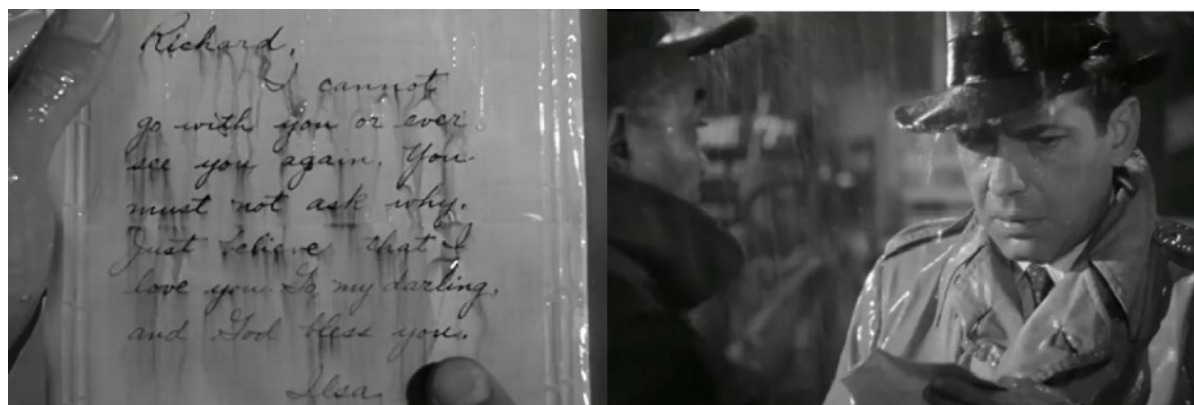 Richard,
I cannot
go with you or ever
see you again. You
must not ask why.
Just believe that I
love you. Go my darling,
and God bless you.
Ilsa